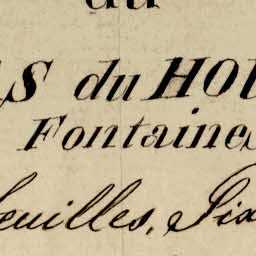 du
S du HOU
Fontaines
feuilles, Six